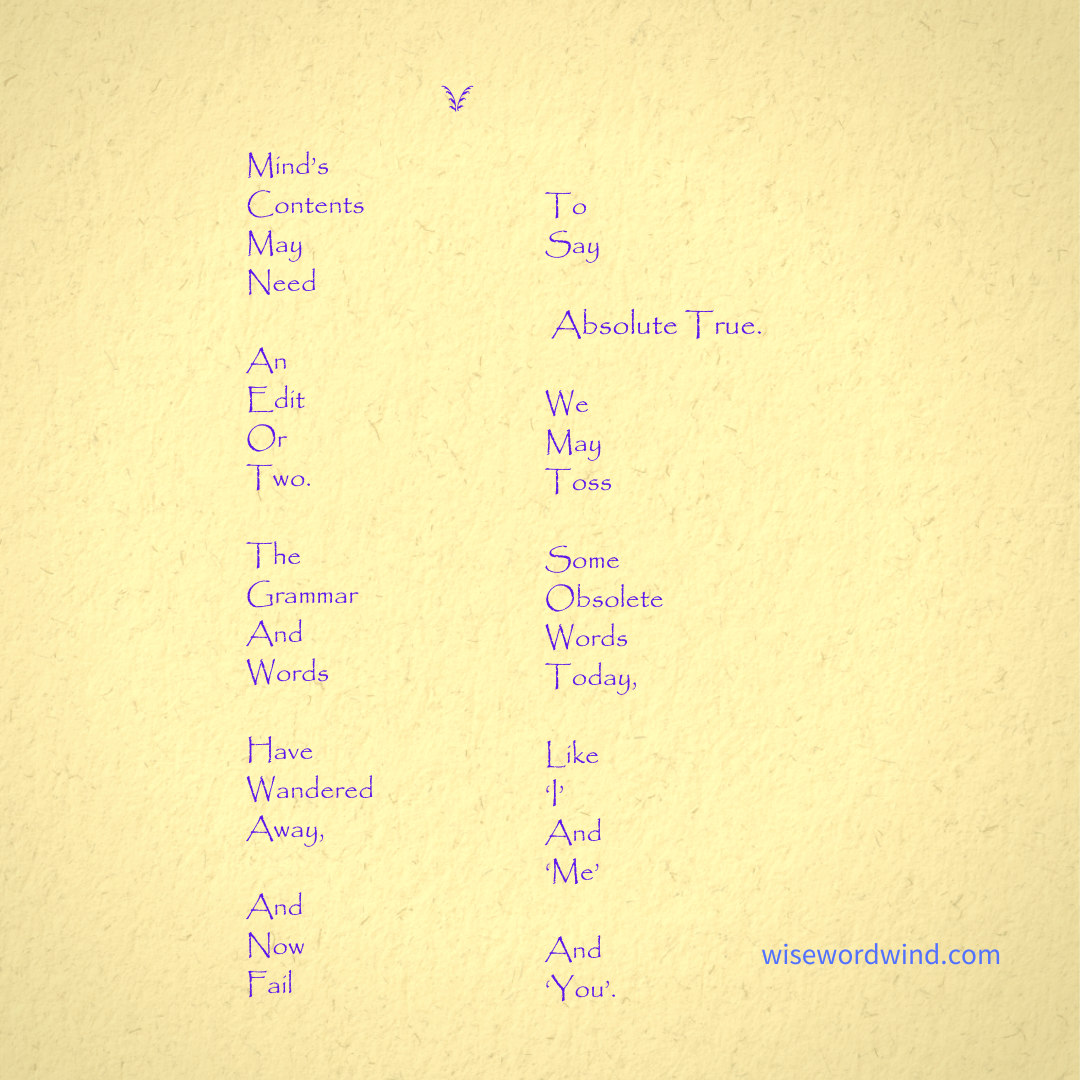 Mind’s
Contents
May
Need
An
Edit
Or
Two.
The
Grammar
And
Words
Have
Wandered
Away,
And
Now
Fail
To
Say
Absolute True.
We
May
Toss
Some
Obsolete
Words
Today,
Like
‘I’
And
‘Me’
And
‘You’.
wisewordwind.com